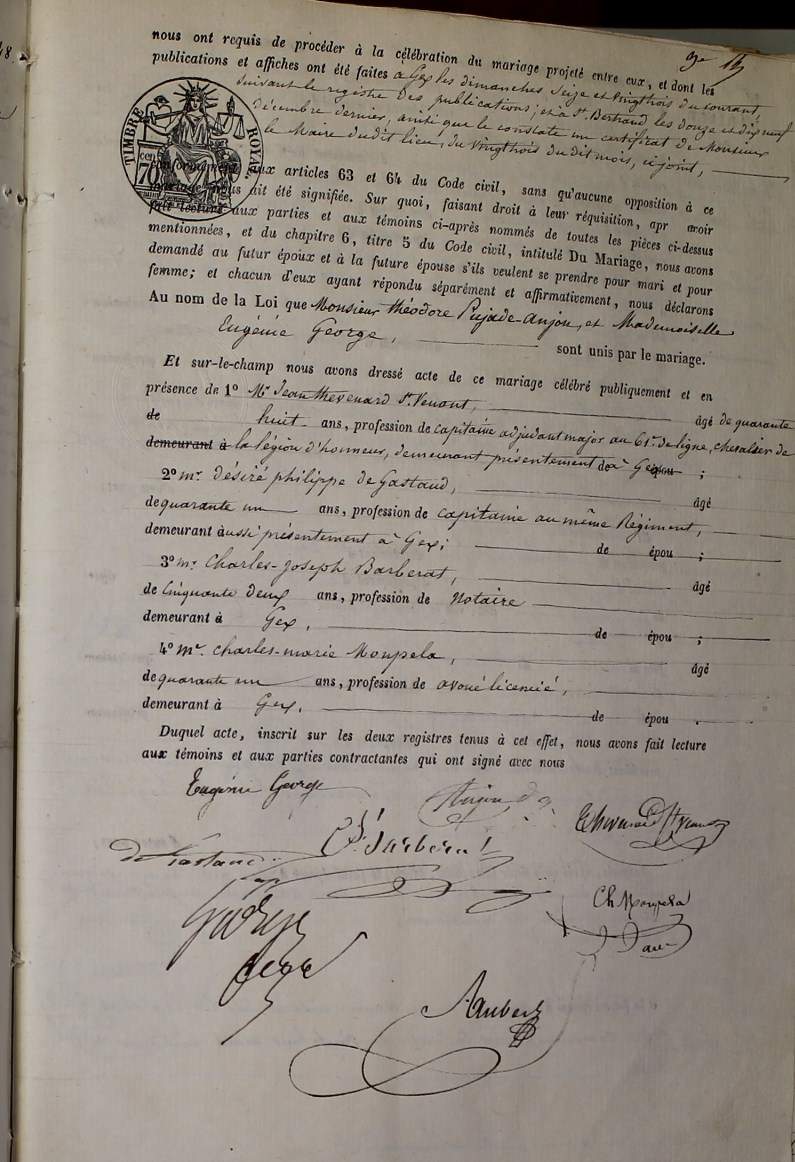 48.
nous ont requis de procéder à la célébration du mariage projeté entre eux, et dont les
publications et affiches ont été faites a Gex les dimanches Seize et vingttrois du courant,
suivant le registre des publications; et a St. Bertrand les douze et dix neuf
décembre dernier, ainsi que le constate un certificat de Monsieur
le Maire dudit lieu, du vingttrois dudit mois, ci joint,
TIMBRE ROYAL
70 cen
conformément aux articles 63 et 64 du Code civil, sans qu'aucune opposition à ce
mariage nous ait été signifiée. Sur quoi, faisant droit à leur réquisition, apr avoir
fait lecture aux parties et aux témoins ci-après nommés de toutes les pièces ci-dessus
mentionnées, et du chapitre 6, titre 5 du Code civil, intitulé Du Mariage, nous avons
demandé au futur époux et à la future épouse s'ils veulent se prendre pour mari et pour
femme; et chacun d'eux ayant répondu séparément et affirmativement, nous déclarons
Au nom de la Loi que Monsieur Théodore Pujade-Anjou, et Mademoiselle
Eugénie George, sont unis par le mariage.
Et sur-le-champ nous avons dressé acte de ce mariage célébré publiquement et en
présence de 1° Mr Jean Thevenard St. Venont, âgé de quarante
de huit ans, profession de capitaine adjudant major au 61e. de ligne, chevalier de
demeurant à la légion d'honneur, demeurant présentement de à Gex épou ;
2° mr. désiré philippe de Gastaud, âgé
de quarante un ans, profession de capitaine au même Régiment,
demeurant aussi présentement à Gex; de épou ;
3° mr. Charles-Joseph Barberat, âgé
de Cinquante deux ans, profession de Notaire
demeurant à Gex, de épou ;
4° mr. Charles-marie Monpela, âgé
de quarante un ans, profession de avoué licencié,
demeurant à Gex. de épou .
Duquel acte, inscrit sur les deux registres tenus à cet effet, nous avons fait lecture
aux témoins et aux parties contractantes qui ont signé avec nous
Eugénie George
Anjou
de Gastaud
Ch Monpela
George